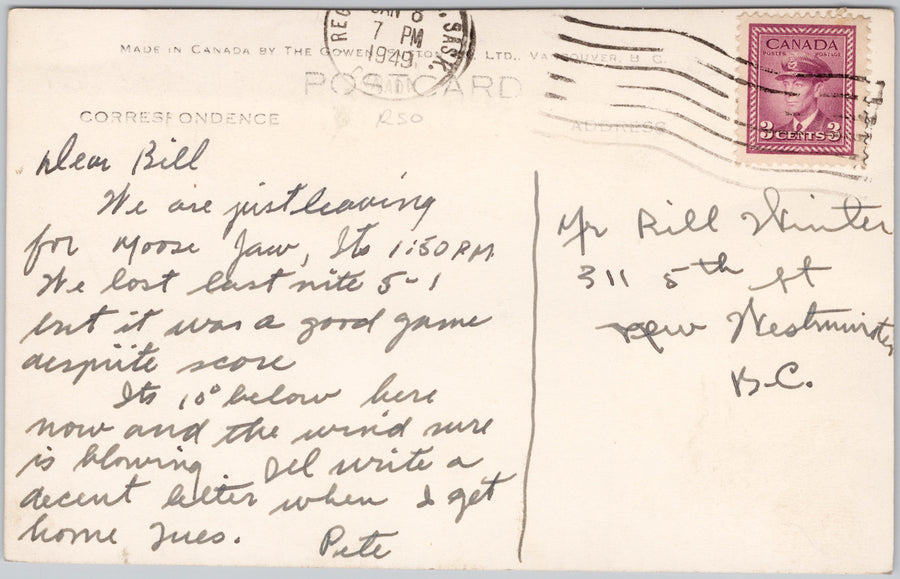 REG JAN 8 SASK.
7 PM
1949
MADE IN CANADA BY THE GOWEN LTD., VANCOUVER, B. C.
POST CARD
CANADA
POSTES POSTAGE
3 CENTS 3
CORRESPONDENCE
RSO
ADDRESS
Dear Bill
We are just leaving
for Moose Jaw, Its 1:30 PM
We lost last nite 5-1
but it was a good game
despite score
Its 10° below here
now and the wind sure
is blowing Iel write a
decent letter when I get
home Tues.
Pete
Mr Bill Winter
311 5th St
New Westminster
B.C.